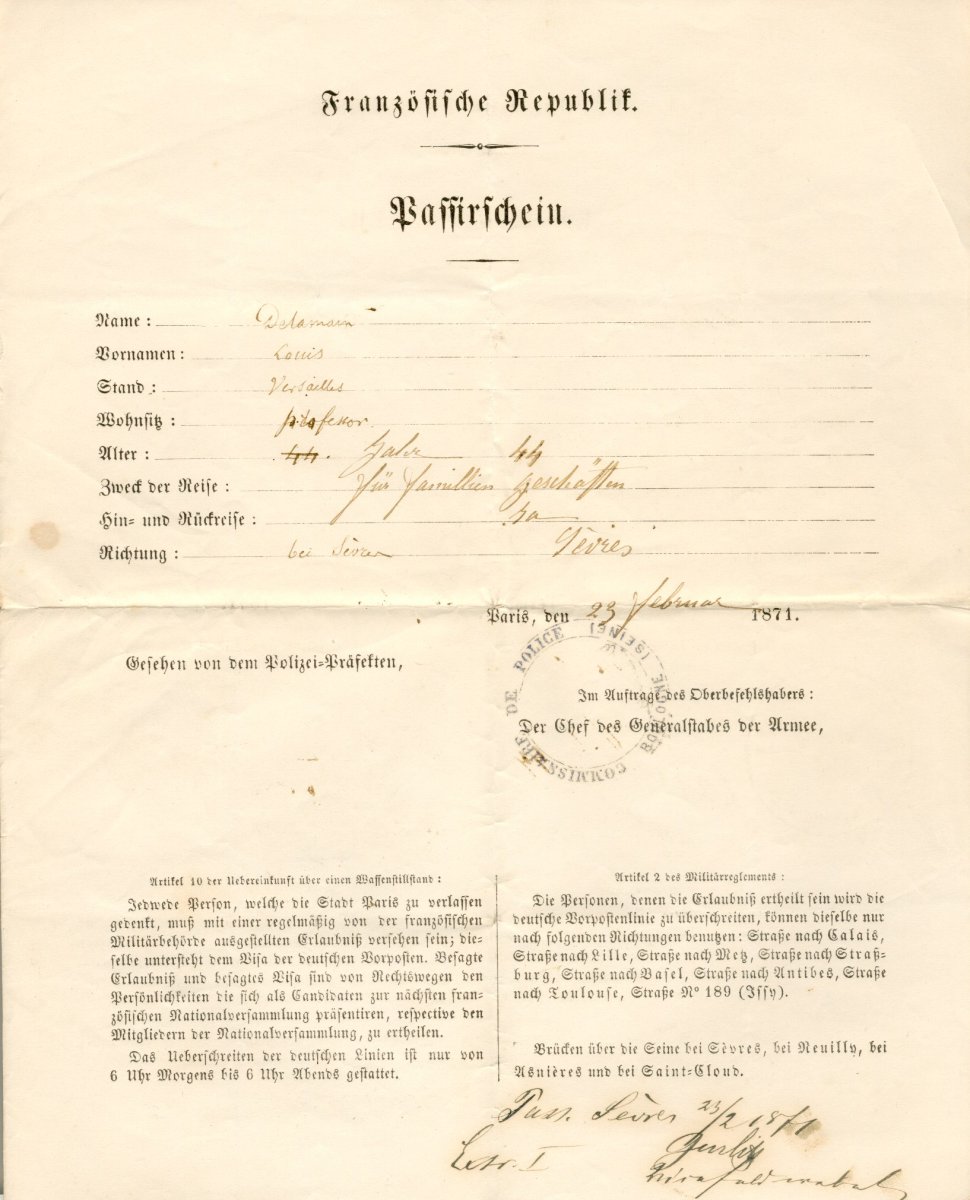 Französische Republik.
Passirschein.
Name: Delamain
Vornamen: Louis
Stand: Versailles
Wohnsitz: professor
Alter: 44. Jahr 44
Zweck der Reise: für famillien geschäften
Hin- und Rückreise: Ja
Richtung: bei Sèvres Sèvres
Paris, den 23 februar 1871.
COMMISSAIRE DE POLICE
BOULOGNE (SEINE)
Gesehen von dem Polizei-Präfekten,
Im Auftrage des Oberbefehlshabers:
Der Chef des Generalstabes der Armee,
Artikel 10 der Uebereinkunft über einen Waffenstillstand:
Jedwede Person, welche die Stadt Paris zu verlassen
gedenkt, muß mit einer regelmäßig von der französischen
Militärbehörde ausgestellten Erlaubniß versehen sein; die-
selbe untersteht dem Visa der deutschen Vorposten. Besagte
Erlaubniß und besagtes Visa sind von Rechtswegen den
Persönlichkeiten die sich als Candidaten zur nächsten fran-
zösischen Nationalversammlung präsentiren, respective den
Mitgliedern der Nationalversammlung, zu ertheilen.
Das Ueberschreiten der deutschen Linien ist nur von
6 Uhr Morgens bis 6 Uhr Abends gestattet.
Artikel 2 des Militärreglements:
Die Personen, denen die Erlaubniß ertheilt sein wird die
deutsche Vorpostenlinie zu überschreiten, können dieselbe nur
nach folgenden Richtungen benutzen: Straße nach Calais,
Straße nach Lille, Straße nach Metz, Straße nach Straß-
burg, Straße nach Basel, Straße nach Antibes, Straße
nach Toulouse, Straße Nº 189 (Issy).
Brücken über die Seine bei Sèvres, bei Neuilly, bei
Asnières und bei Saint-Cloud.
Pass. Sèvres 23/2 1871